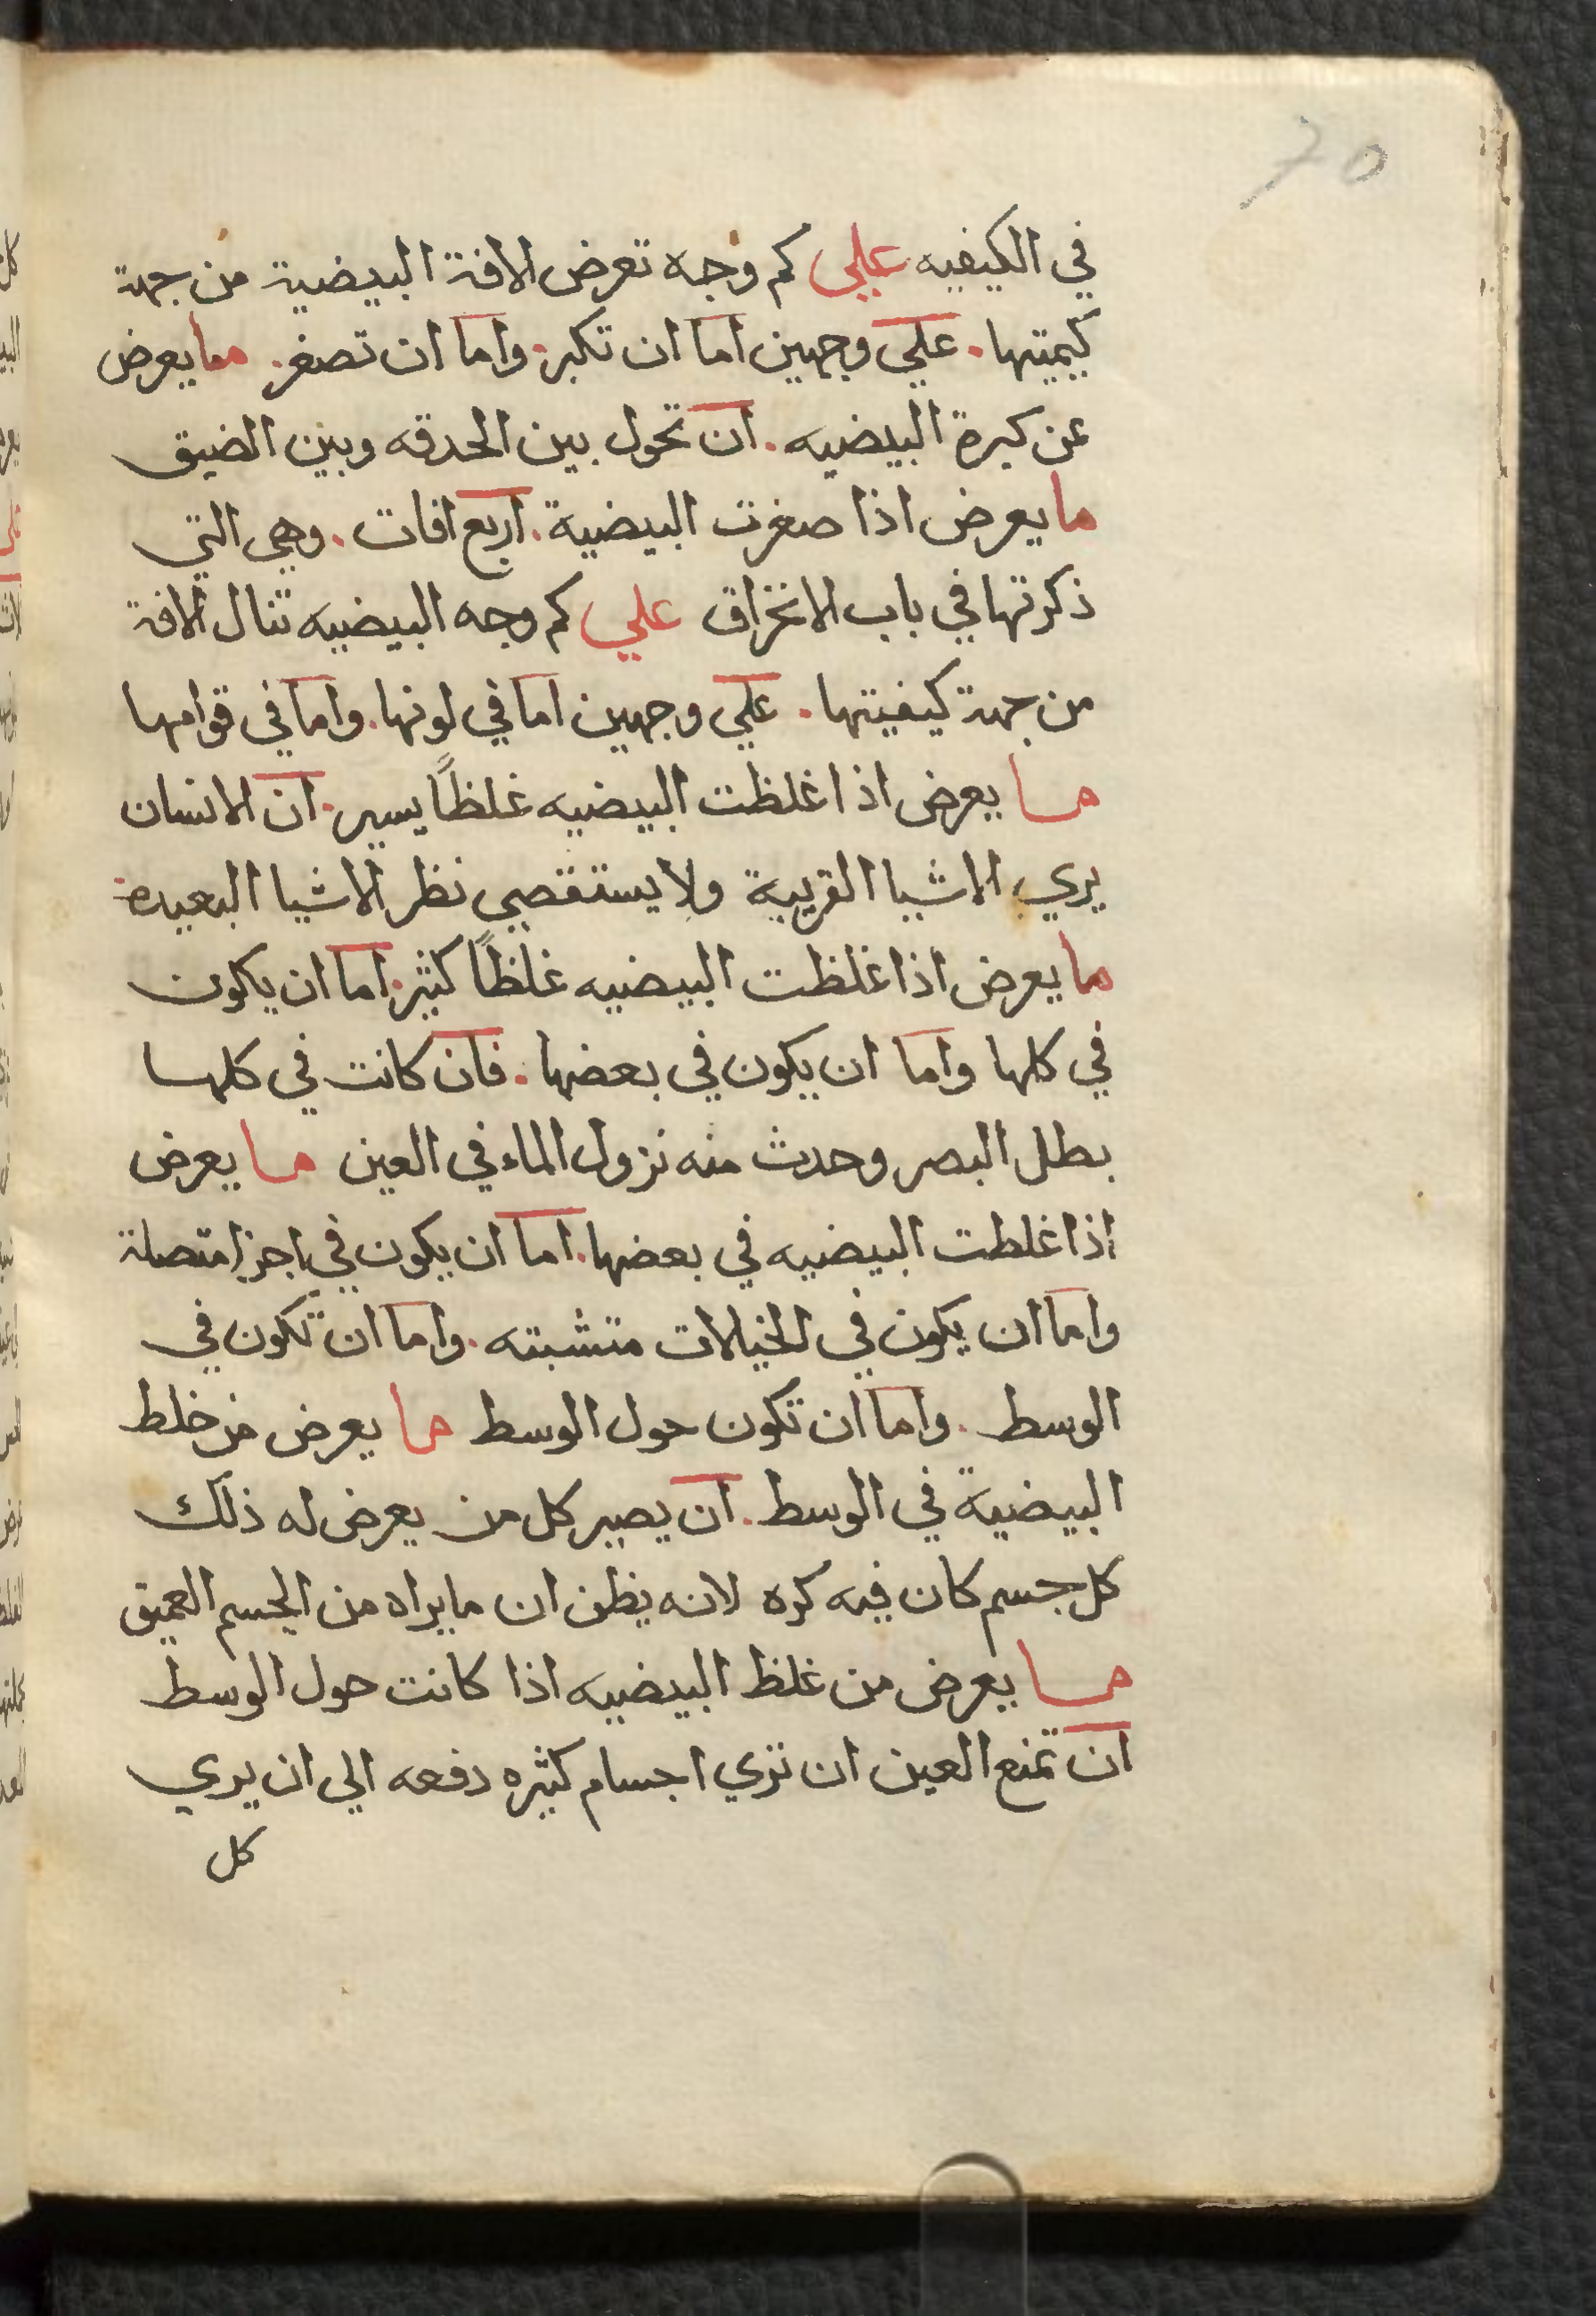 ٢٥
في الكيفيه علي كم وجه تعرض الافة البيضية من جهة
كيميتها. علي وجهين اما ان تكبر. واما ان تصغر. مما يعرض
عن كبرة البيضيه. ان تحول بين الحدقه وبين الضيق
ما يعرض اذا صغرت البيضية. اربع افات. وهي التي
ذكرتها في باب الانخراق علي كم وجه البيضيه تنال الافة
من جهة كيفيتها. علي وجهين اما في لونها. واما في قوامها
ما يعرض اذا غلظت البيضيه غلظاً يسير. ان الانسان
يري الاشيا القريبة ولا يستقصي نظر الاشيا البعيده
ما يعرض اذا غلظت البيضيه غلظاً كثير. اما ان يكون
في كلها واما ان يكون في بعضها. فان كانت في كلها
بطل البصر وحدث منه نزول الماء في العين ما يعرض
اذا غلطت البيضيه في بعضها. اما ان يكون في اجزا متصلة
واما ان يكون في الخيالات متشبته. واما ان تكون في
الوسط. واما ان تكون حول الوسط ما يعرض من خلط
البيضية في الوسط. ان يصير كل من يعرض له ذلك
كل جسم كان فيه كره لانه يظن ان ما يراه من الجسم العميق
ما يعرض من غلظ البيضيه اذا كانت حول الوسط
ان تمنع العين ان تري اجسام كثيره دفعه الي ان يري
كل